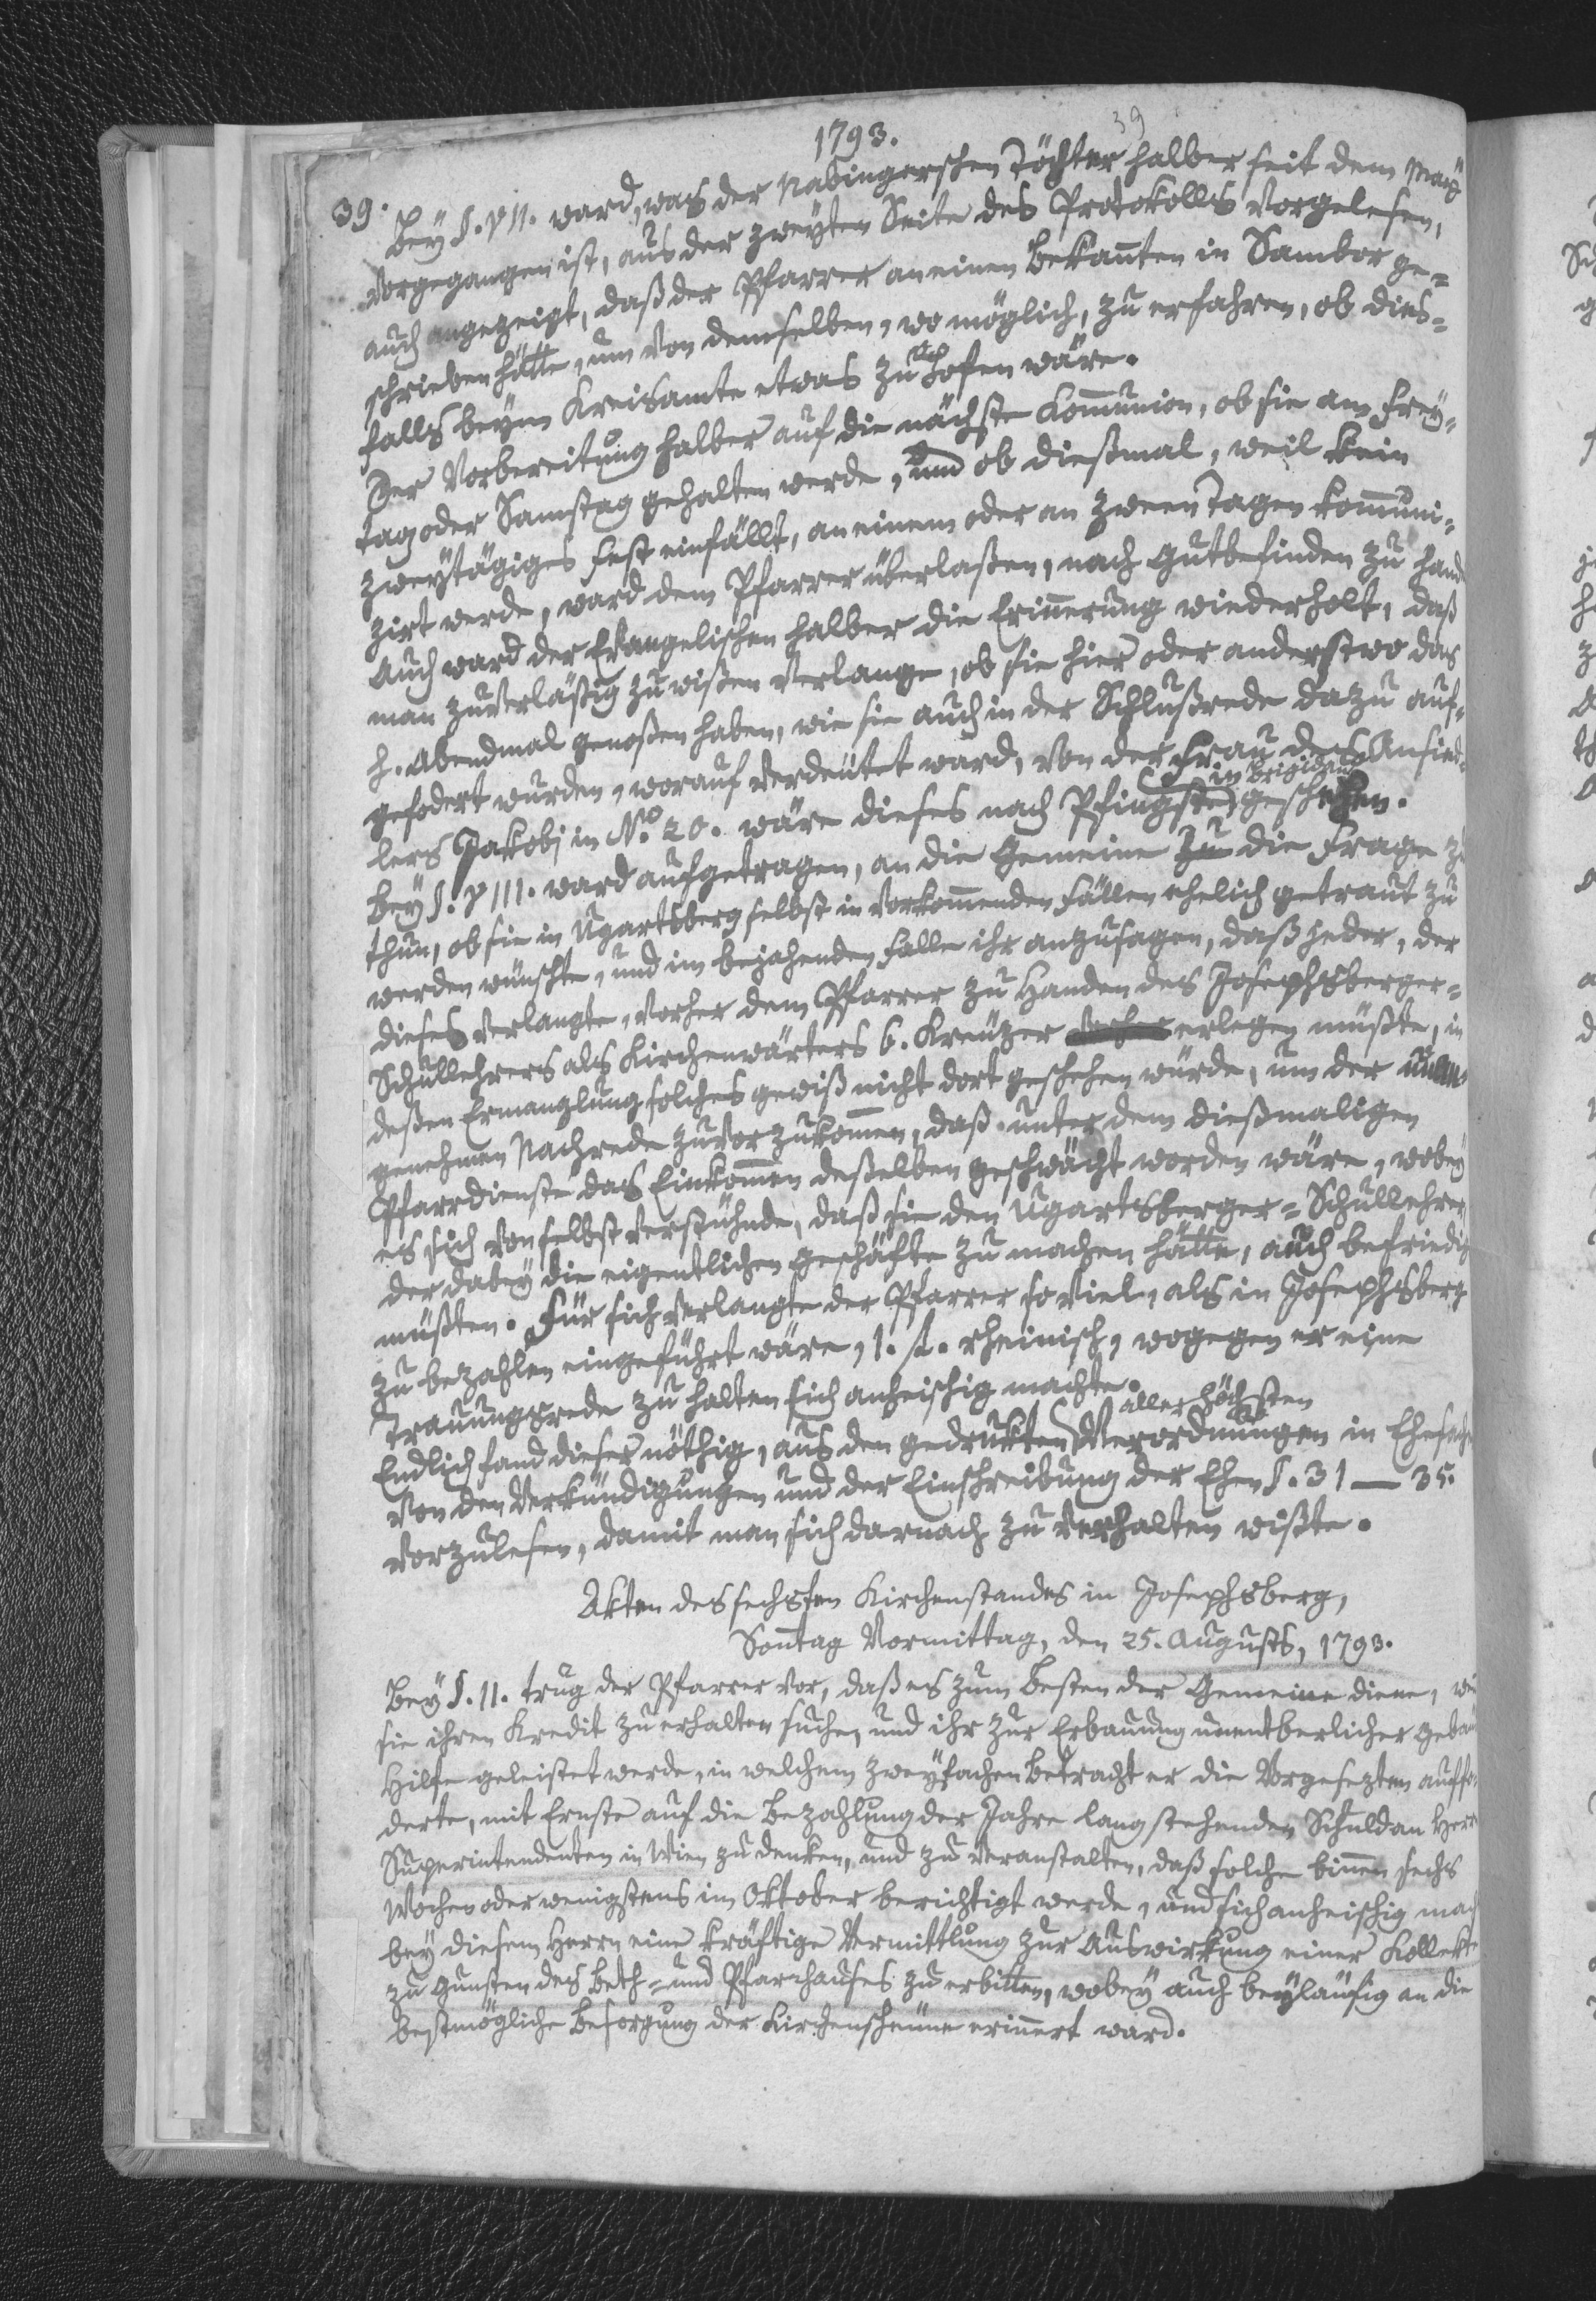 39
1793.
39. Bey §. VII. ward, was der Nabingerschen Töchter halber seit dem May
vorgegangen ist, aus der zweyten Seite des Protokolls vorgelesen,
auch angezeigt, daß der Pfarrer an einen Bekañten in Sambor ge=
schrieben hätte, um von demselben, wo möglich, zu erfahren, ob dies=
falls beym Kreisamte etwas zu hofen wäre.
Der Vorbereitung halber auf die nächste Kom̃union, ob sie am Frey=
tag oder Samstag gehalten werde, und ob dießmal, weil kein
zweytägiges Fest einfällt, an einem oder an zween Tagen kom̃uni=
zirt werde, ward dem Pfarrer überlaßen, nach Gutbefinden zu hand
Auch ward der Evangelischen halber die Eriñerung wiederholt, daß
man zuverläßig zu wißen verlange, ob sie hier oder anderstwo das
h. Abendmal genoßen haben, wie sie auch in der Schlußrede dazu auf=
gefodert wurden, worauf verdeutet ward, von der Frau des Ansied=
lers Jakobj in No. 20. wäre dieses nach Pfingsten in Brigidau geschehen.
Bey §. VIII. ward aufgetragen, an die Gemeine zu die Frage zu
thun, ob sie in Ugartsberg selbst in vorkom̃enden Fällen ehelich getraut zu
werden wünschte, und im bejahenden Falle ihr anzusagen, daß jeder, der
dieses verlangte, vorher dem Pfarrer zu Handen des Josephsberger=
Schullehrers als Kirchenwärters 6. Kreuzer vorher erlegen müßte, in
deßen Ermanglung solches gewiß nicht dort geschehen würde, um der unan=
genehmen Nachrede zuvorzukom̃en, daß unter dem dießmaligen
Pfarrdienste das Einkom̃en deßelben geschwächt worden wäre, wobey
es sich von selbst verstühnde, daß sie den Ugartsberger=Schullehrer,
der dabey die eigentlichen Geschäfte zu machen hätte, auch befriedig
müßten. Für sich verlangte der Pfarrer so viel, als in Josephsberg
zu bezahlen eingeführt wäre, 1. fl. rheinisch, wogegen er eine
Trauungsrede zu halten sich anheischig machte.
Endlich fand dieser nöthig, aus den gedrukten allerhöchsten Verordnungen in Ehesach
von den Verkündigungen und der Einschreibung der Ehen §. 31 — 35.
vorzulesen, damit man sich darnach zu verhalten wißte.
Akten des sechsten Kirchenstandes in Josephsberg,
Soñtag Vormittag, den 25. Augusts, 1793.
Bey §. II. trug der Pfarrer vor, daß es zum Besten der Gemeine diene, weñ
sie ihren Kredit zu erhalten suche, und ihr zur Erbauung unentberlicher Gebäu
Hilfe geleistet werde, in welchem zweyfachen Betracht er die Vorgesezten auffo=
derte, mit Ernste auf die Bezahlung der Jahre lang stehenden Schuld an Herrn
Superintendenten in Wien zu denken, und zu veranstalten, daß solche biñen sechs
Wochen oder wenigstens im Oktober berichtigt werde, und sich anheischig mach
bey diesem Herrn eine kräftige Vermittlung zur Auswirkung einer Kollekte
zu Gunsten des Beth= und Pfarrhauses zu erbitten, wobey auch beyläufig an die
bestmögliche Besorgung der Kirchenscheune eriñert ward.